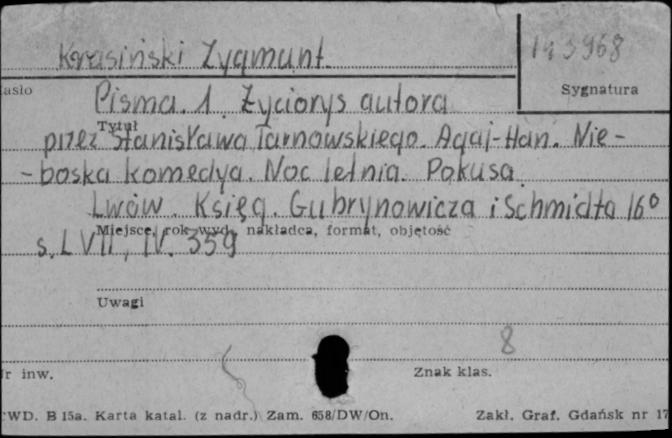 Krasiński Zygmunt
asło
Sygnatura
Pisma. 1. Życiorys autora
Tytuł
przez Stanisława Tarnowskiego. Agaj-Han. Nie-
-boska komedya. Noc letnia. Pokusa.
Lwów. Księg. Gubrynowicza i Schmidta 16°
Miejsce, rok wyd., nakładca, format, objętość
s. LVII, IV. 359
Uwagi
8
r inw.
Znak klas.
WD. B 15a. Karta katal. (z nadr.) Zam. 658/DW/On.
Zakł. Graf. Gdańsk nr 17